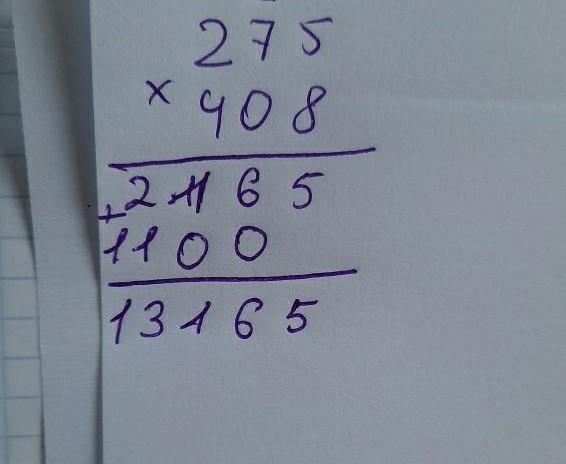 275
× 408
2165
+
1100
13165